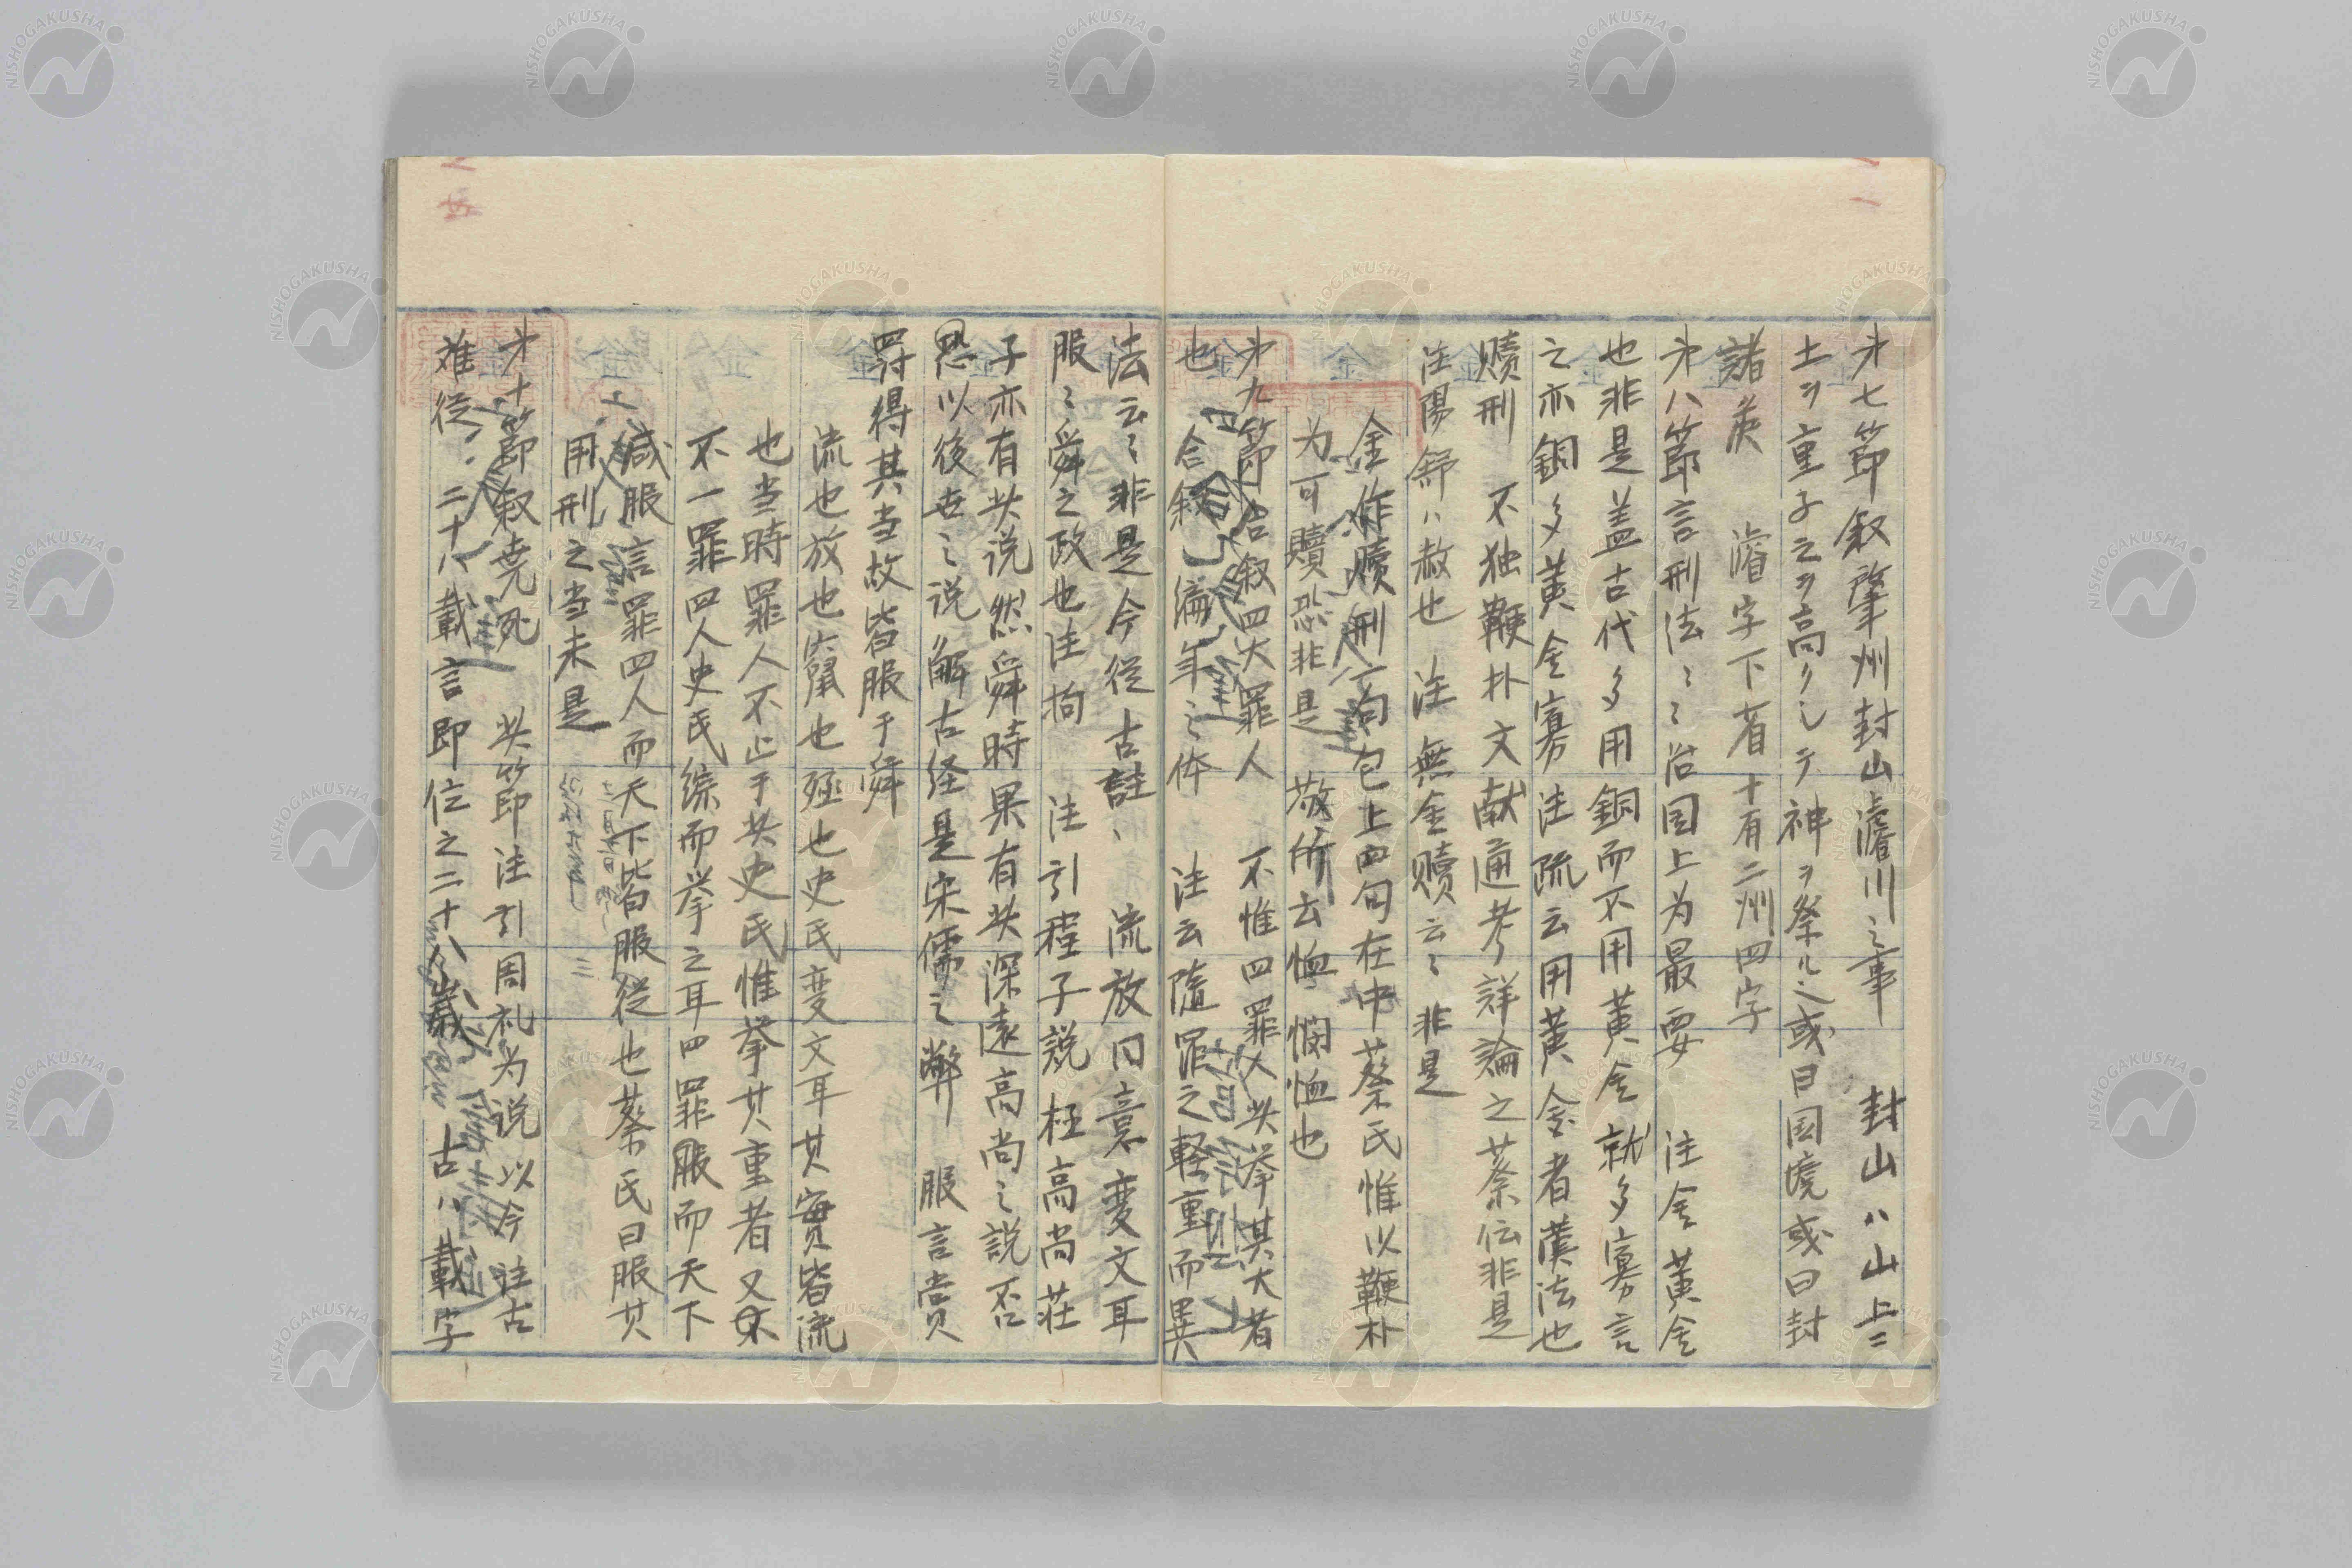 第七節叙肇州封山濬川之事　封山ハ山上ニ
土ヲ重子之ヲ高クシテ神ヲ祭ル之或曰国境或曰封
諸矦　濬字下省十有二州四字
第八節言刑法〻〻治国上为最要　注金黄金
也非是盖古代多用銅而不用黄金就多寡言
之亦銅多黄金寡注疏云用黄金者漢法也
贖刑　不独鞭朴文献通考詳論之蔡伝非是
注陽舒ハ赦也　注無金贖云〻非是
金作贖刑一句包上四句在中蔡氏惟以鞭朴
为可贖恐非是　敬所云恤憫恤也
第九節合叙四大罪人　不惟四罪人此挙其大者
也　合叙　編年之体　注云隨罪之軽重而異
法云〻非是今従古註、流放同意変文耳
服〻舜之政也注拘　注引程子説極高尚荘
子亦有此说然舜時果有此深遠高尚之説否
恐以後世之说解古経是宋儒之弊　服言賞
罸得其当故皆服于舜
流也放也竄也殛也史氏変文耳其實皆流
也当時罪人不止于此史氏惟挙其重者又
不一罪四人史氏綜而挙之耳四罪服而天下
咸服言罪四人而天下皆服従也蔡氏曰服其
用刑之当未是
第十節叙堯死　此節注引周礼为说以今注古
难従、二十八載言即位之二十八歳　古ハ載字